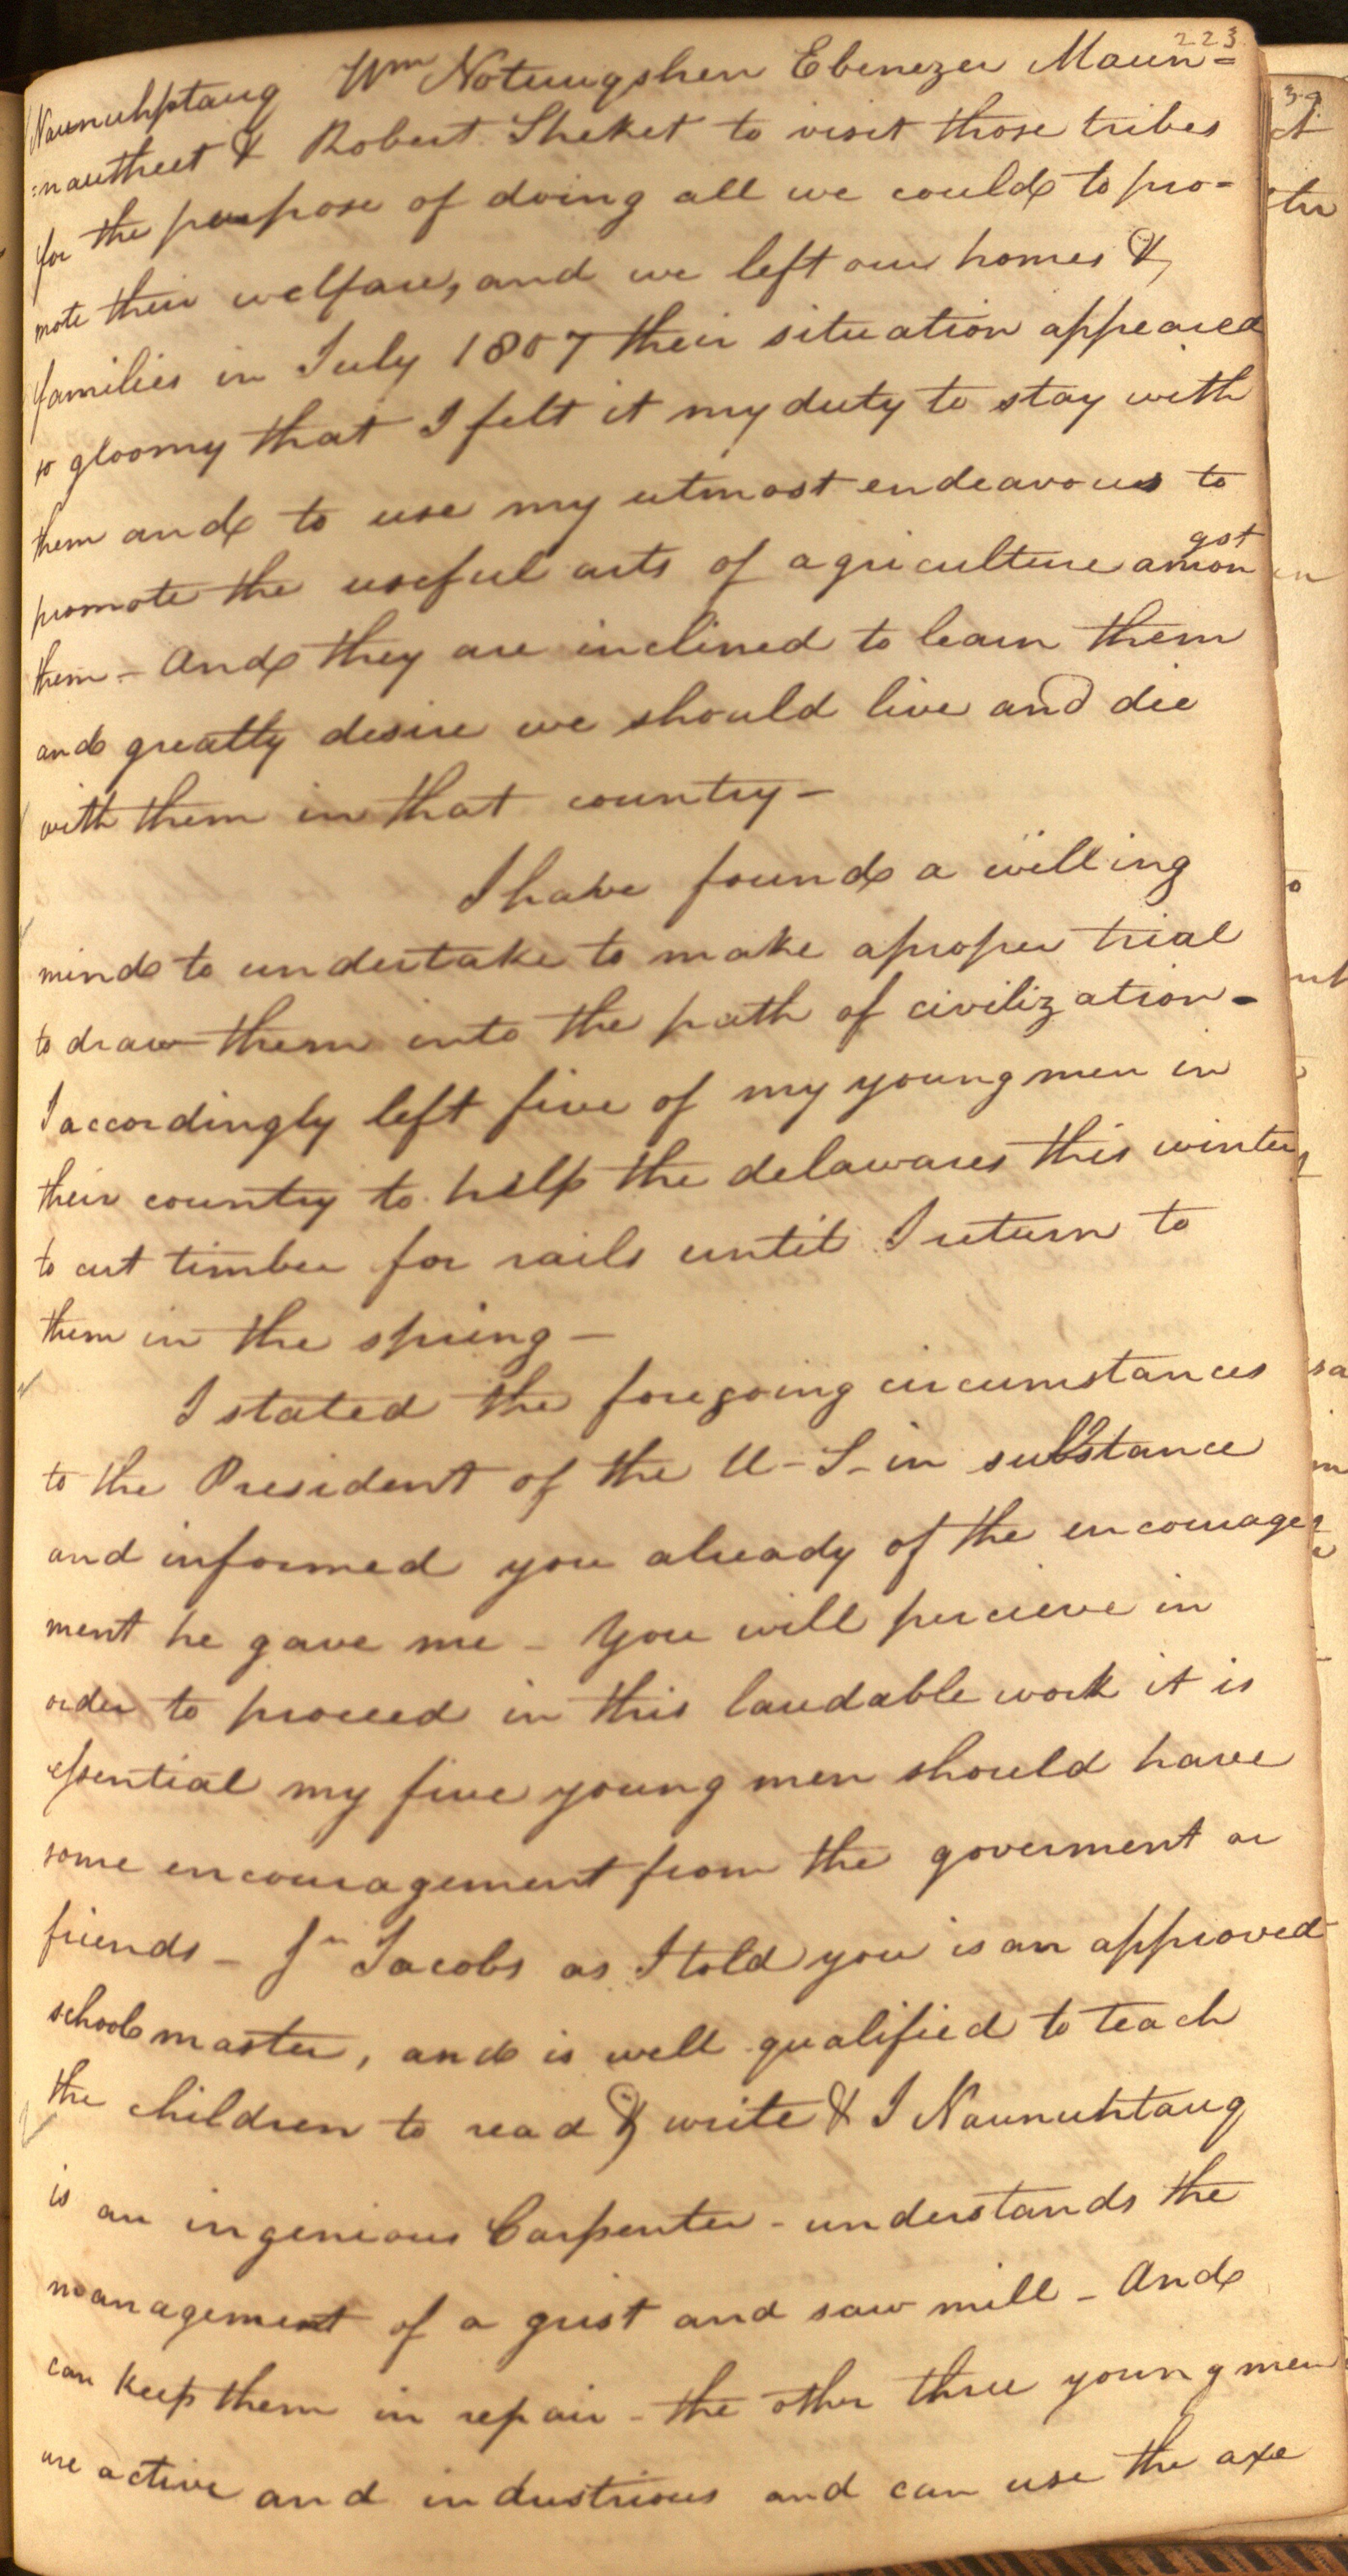 223
Naunuhptaug Wm Notuuqshen Ebenezer Maun=
=nautheet & Robert Sheket to visit those tribes
for the purpose of doing all we could to pro=
mote their welfare, and we left our homes &
families in July 1807 their situation appeared
so gloomy that I felt it my duty to stay with
them and to use my utmost endeavours to
promote the useful arts of agriculture amongst
them - And they are inclined to learn them
and greatly desire we should live and die
with them in that country -
I have found a willing
mind to undertake to make a proper trial
to draw them into the path of civilization -
I accordingly left five of my young men in
their country to help the delawares this winter
to cut timber for rails until I return to
them in the spring -
I stated the foregoing circumstances
to the President of the U-S- in substance
and informed you already of the encourage
ment he gave me - You will percieve in
order to proceed in this laudable work it is
essential my five young men should have
some encouragement from the goverment or
friends - Jn Jacobs as I told you is an approved
school master, and is well qualified to teach
the children to read & write & I Naunuhtaug
is an ingenious Carpenter - understands the
management of a grist and saw mill - And
can keep them in repair - the other three young men
are active and industrious and can use the axe